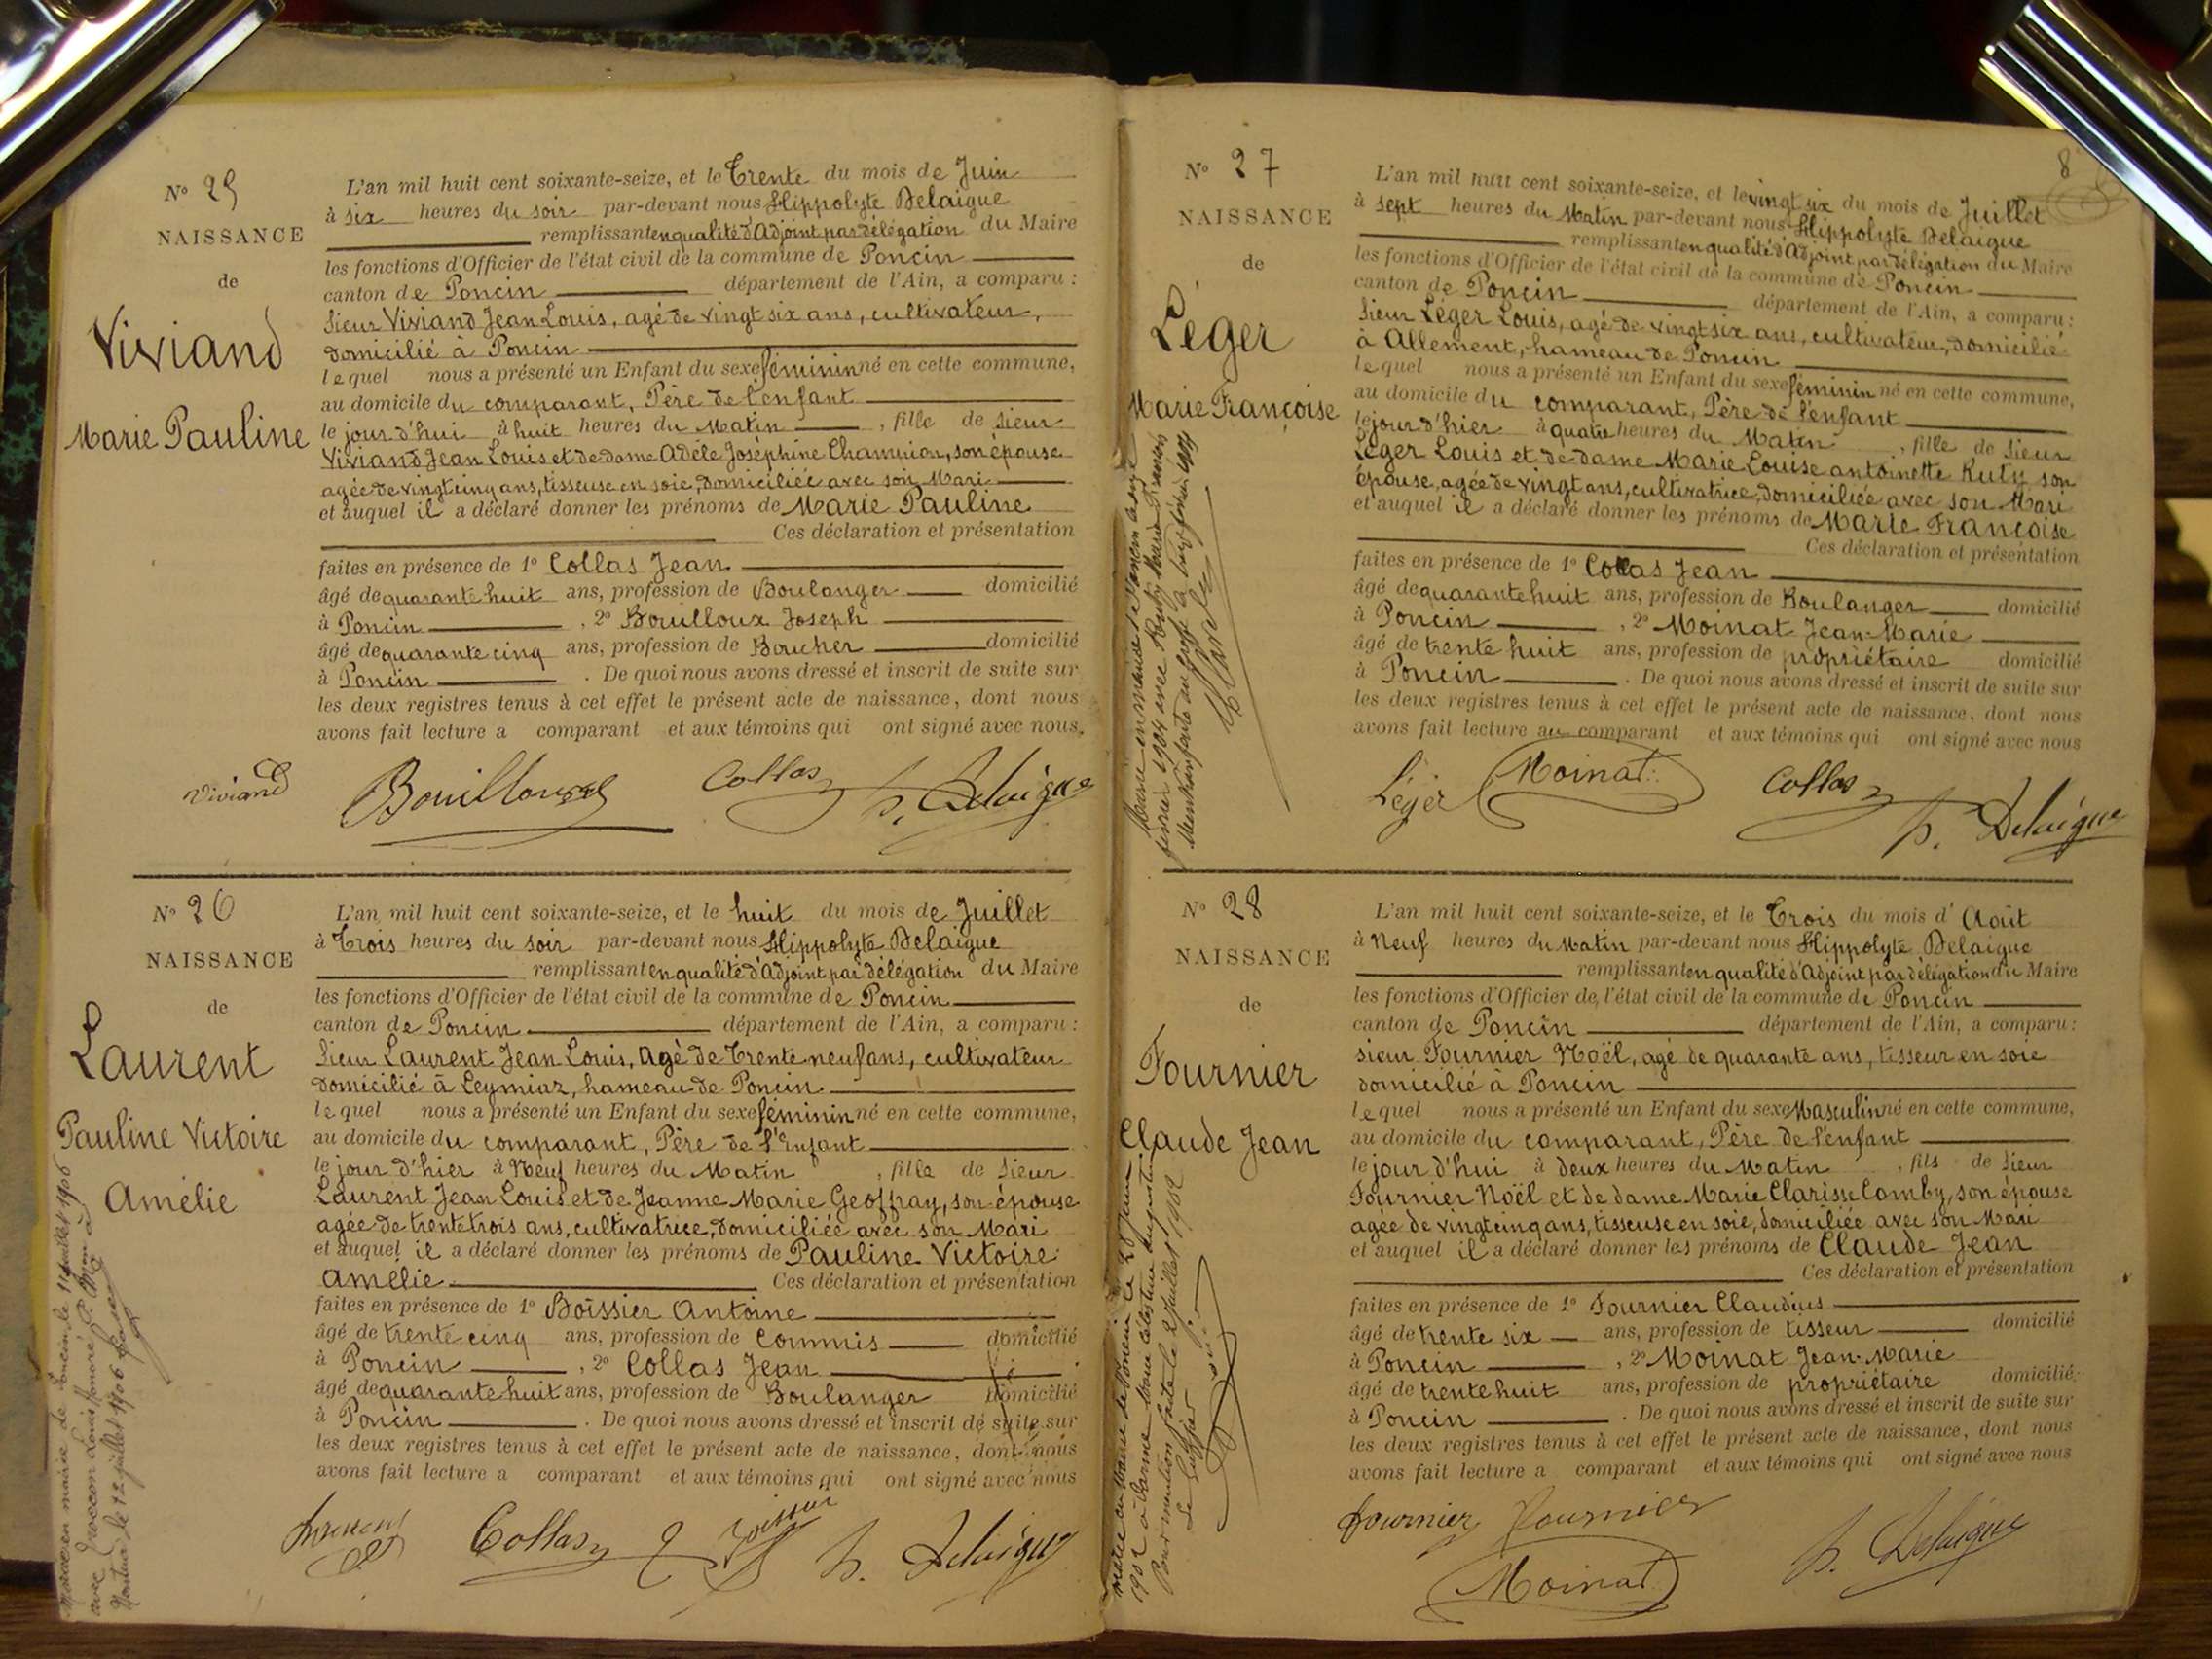 N° 25
NAISSANCE
de
Viviand
Marie Pauline
L'an mil huit cent soixante-seize, et le Trente du mois de Juin
à six heures du soir par-devant nous Hippolyte Delaigue
remplissant en qualité d'Adjoint par délégation du Maire
les fonctions d'Officier de l'état civil de la commune de Poncin
canton de Poncin département de l'Ain, a comparu :
Sieur Viviand Jean Louis, agé de vingt six ans, cultivateur,
domicilié à Poncin
lequel nous a présenté un Enfant du sexe féminin né en cette commune,
au domicile du comparant, Père de l'enfant
le jour d'hui à huit heures du Matin, fille de Sieur
Viviand Jean Louis et de dame Adèle Joséphine Champion, son épouse
agée de vingt cinq ans, tisseuse en soie, domiciliée avec son Mari
et auquel il a déclaré donner les prénoms de Marie Pauline
Ces déclaration et présentation
faites en présence de 1° Collas Jean
âgé de quarante huit ans, profession de Boulanger domicilié
à Poncin, 2° Bouilloux Joseph
âgé de quarante cinq ans, profession de Boucher domicilié
à Poncin. De quoi nous avons dressé et inscrit de suite sur
les deux registres tenus à cet effet le présent acte de naissance, dont nous
avons fait lecture a comparant et aux témoins qui ont signé avec nous.
Viviand Bouilloux Collas h. Delaigue
N° 26
NAISSANCE
de
Laurent
Pauline Victoire
Amélie
L'an mil huit cent soixante-seize, et le huit du mois de Juillet
à Trois heures du soir par-devant nous Hippolyte Delaigue
remplissant en qualité d'Adjoint par délégation du Maire
les fonctions d'Officier de l'état civil de la commune de Poncin
canton de Poncin département de l'Ain, a comparu :
Sieur Laurent Jean Louis, Agé de Trente neuf ans, cultivateur
domicilié à Leymiaz, hameau de Poncin
lequel nous a présenté un Enfant du sexe féminin né en cette commune,
au domicile du comparant, Père de l'Enfant
le jour d'hier à Neuf heures du Matin, fille de Sieur
Laurent Jean Louis et de Jeanne Marie Geoffray, son épouse
agée de trente trois ans, cultivatrice, domiciliée avec son Mari
et auquel il a déclaré donner les prénoms de Pauline Victoire
Amélie Ces déclaration et présentation
faites en présence de 1° Boissier Antoine
âgé de trente cinq ans, profession de Commis domicilié
à Poncin, 2° Collas Jean
âgé de quarante huit ans, profession de Boulanger domicilié
à Poncin. De quoi nous avons dressé et inscrit de suite sur
les deux registres tenus à cet effet le présent acte de naissance, dont nous
avons fait lecture a comparant et aux témoins qui ont signé avec nous
Laurent Collas h. Delaigue
Mariée en mairie de Poncin le 11 juillet 1906
avec Louis Honoré
le 12 juillet 1906
8
N° 27
NAISSANCE
de
Léger
Marie Françoise
L'an mil huit cent soixante-seize, et le vingt six du mois de Juillet
à sept heures du Matin par-devant nous Hippolyte Delaigue
remplissant en qualité d'Adjoint par délégation du Maire
les fonctions d'Officier de l'état civil de la commune de Poncin
canton de Poncin département de l'Ain, a comparu :
Sieur Léger Louis, agé de vingt six ans, cultivateur, domicilié
à Allement, hameau de Poncin
lequel nous a présenté un Enfant du sexe féminin né en cette commune,
au domicile du comparant, Père de l'enfant
le jour d'hier à quatre heures du Matin, fille de Sieur
Léger Louis et de dame Marie Louise antoinette Ruty son
épouse, agée de vingt ans, cultivatrice, domiciliée avec son Mari
et auquel il a déclaré donner les prénoms de Marie Françoise
Ces déclaration et présentation
faites en présence de 1° Collas Jean
âgé de quarante huit ans, profession de Boulanger domicilié
à Poncin, 2° Moinat Jean-Marie
âgé de trente huit ans, profession de propriétaire domicilié
à Poncin. De quoi nous avons dressé et inscrit de suite sur
les deux registres tenus à cet effet le présent acte de naissance, dont nous
avons fait lecture au comparant et aux témoins qui ont signé avec nous
Léger Moinat Collas h. Delaigue
février 1904 avec Ruty Marie
N° 28
NAISSANCE
de
Fournier
Claude Jean
L'an mil huit cent soixante-seize, et le Trois du mois d'Août
à Neuf heures du Matin par-devant nous Hippolyte Delaigue
remplissant en qualité d'Adjoint par délégation du Maire
les fonctions d'Officier de l'état civil de la commune de Poncin
canton de Poncin département de l'Ain, a comparu :
sieur Fournier Noël, agé de quarante ans, tisseur en soie
domicilié à Poncin
lequel nous a présenté un Enfant du sexe Masculin né en cette commune,
au domicile du comparant, Père de l'enfant
le jour d'hui à deux heures du Matin, fils de Sieur
Fournier Noël et de dame Marie Clarisse Comby, son épouse
agée de vingt cinq ans, tisseuse en soie, domiciliée avec son Mari
et auquel il a déclaré donner les prénoms de Claude Jean
Ces déclaration et présentation
faites en présence de 1° Fournier Claudius
âgé de trente six ans, profession de tisseur domicilié
à Poncin, 2° Moinat Jean-Marie
âgé de trente huit ans, profession de propriétaire domicilié
à Poncin. De quoi nous avons dressé et inscrit de suite sur
les deux registres tenus à cet effet le présent acte de naissance, dont nous
avons fait lecture a comparant et aux témoins qui ont signé avec nous
Fournier Fournier h. Delaigue
Moinat
Pour mention faite le 2 juillet 1902
Le Greffier